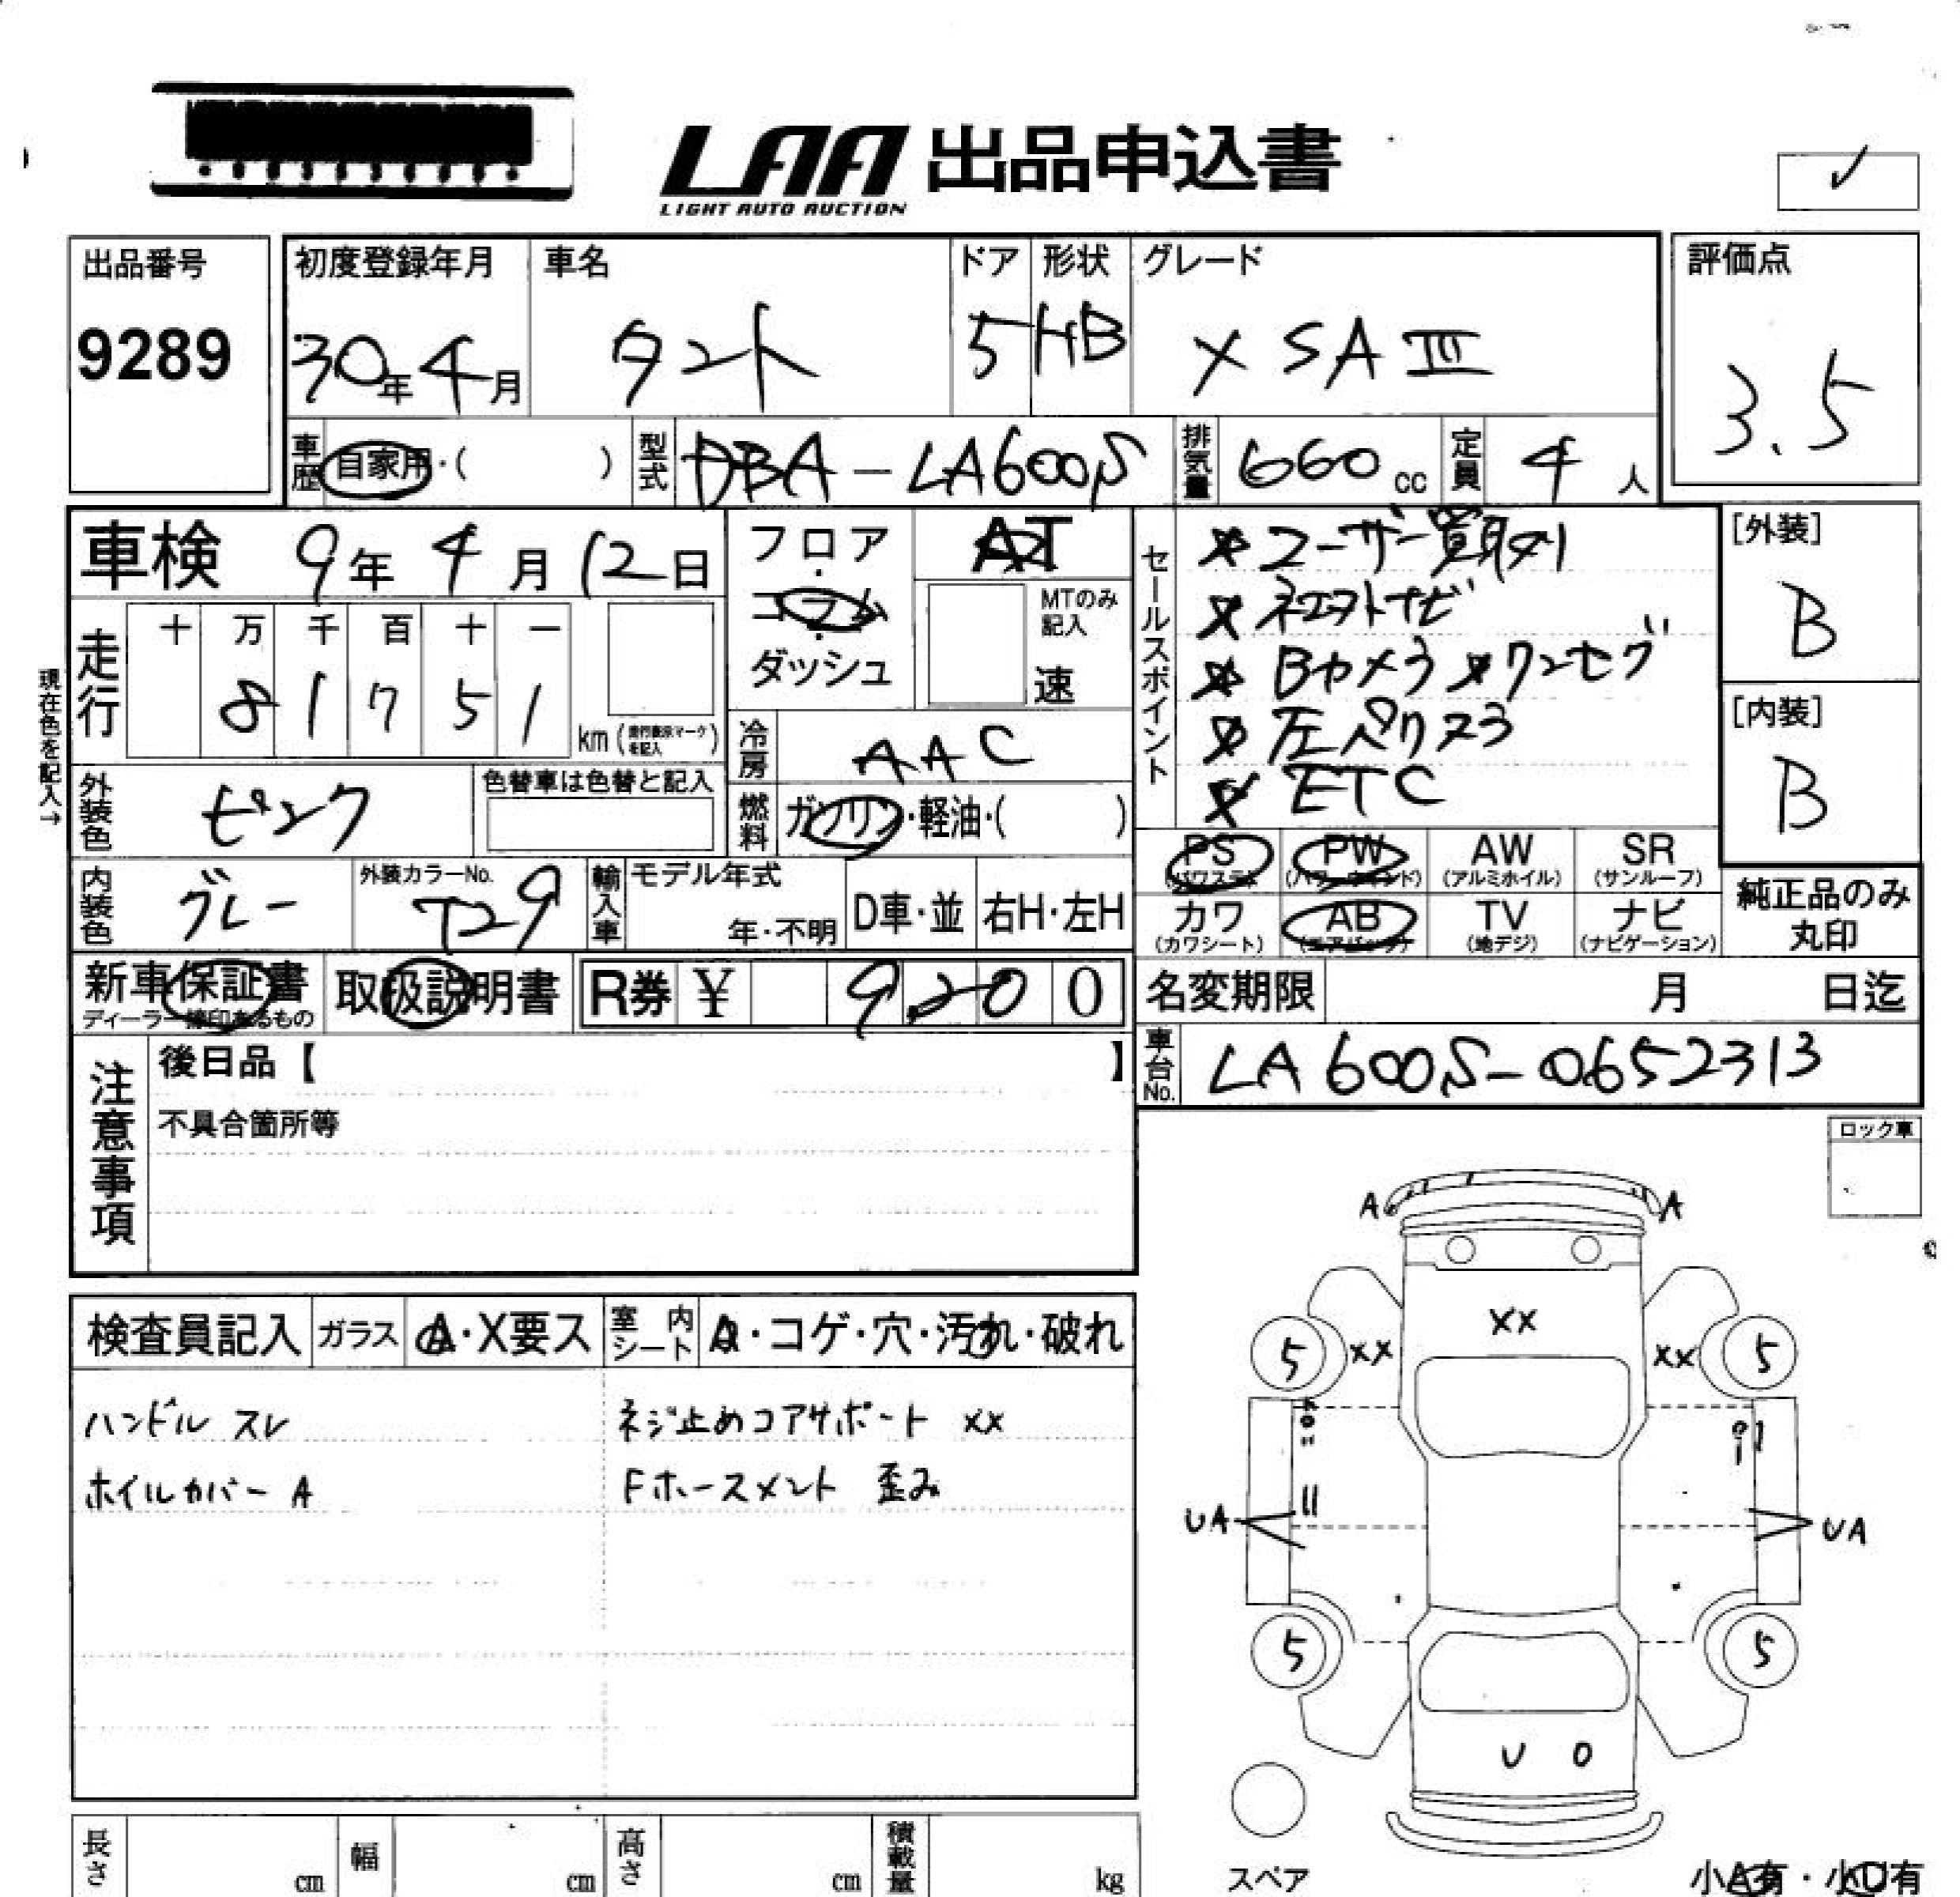 LAA 出品申込書
LIGHT AUTO AUCTION
✓
出品番号
9289
初度登録年月
30年 4月
車名
タント
ドア
5
形状
HB
グレード
X SA III
評価点
3.5
車歴
自家用・( )
型式
DBA-LA600S
排気量
660 cc
定員
4 人
車検 9年 4月 12日
走行
十 万 千 百 十 一
8 1 7 5 1
km (走行表示マークを記入)
現在色を記入→
外装色
ピンク
色替車は色替と記入
内装色
グレー
外装カラーNo.
T29
フロア
・
コラム
・
ダッシュ
AT
MTのみ記入
速
冷房
AAC
燃料
ガソリン・軽油・( )
輸入車
モデル年式
年・不明
D車・並
右H・左H
セールスポイント
ユーザー買取
ナビ
Bカメラ ワンセグ
左
ETC
[外装]
B
[内装]
B
PS (パワステ)
PW (パワーウインド)
AW (アルミホイル)
SR (サンルーフ)
カワ (カワシート)
AB (エアバック)
TV (地デジ)
ナビ (ナビゲーション)
純正品のみ丸印
新車保証書
ディーラー捺印あるもの
取扱説明書
R券 ¥ 9,200
名変期限 月 日迄
車台No.
LA600S-0652313
注意事項
後日品【 】
不具合箇所等
ロック車
検査員記入
ガラス
A・X要ス
室内シート
・コゲ・穴・汚れ・破れ
ハンドル スレ
ネジ止めコアサポート XX
ホイルカバー A
Fホースメント 歪み
A A
XX
5 XX XX 5
UA UA
5 5
U
スペア
小A有・小U有
長さ cm
幅 cm
高さ cm
積載量 kg